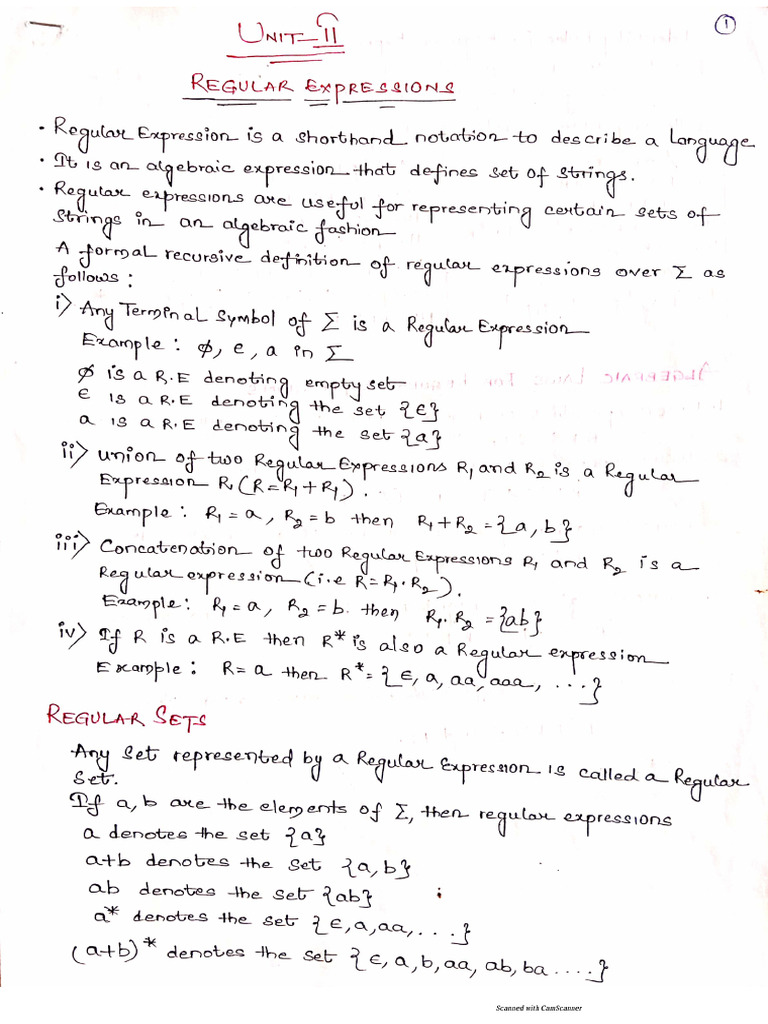 1
UNIT-II
REGULAR EXPRESSIONS
• Regular Expression is a shorthand notation to describe a language
• It is an algebraic expression that defines set of strings.
• Regular expressions are useful for representing certain sets of
strings in an algebraic fashion
A formal recursive definition of regular expressions over Σ as
follows:
i) Any Terminal symbol of Σ is a Regular Expression
Example: ϕ, ϵ, a in Σ
ϕ is a R.E denoting empty set
ϵ is a R.E denoting the set {ϵ}
a is a R.E denoting the set {a}
ii) union of two Regular Expressions R₁ and R₂ is a Regular
Expression R, (R=R₁+R₁).
Example: R₁=a, R₂=b then R₁+R₂={a,b}
iii) Concatenation of two Regular Expressions R₁ and R₂ is a
Regular expression (i.e R=R₁.R₂).
Example: R₁=a, R₂=b. then R₁.R₂={ab}
iv) If R is a R.E then R* is also a Regular expression
Example: R=a then R*={ϵ, a, aa, aaa, ...}
REGULAR SETS
Any set represented by a Regular Expression is called a Regular
set.
If a,b are the elements of Σ, then regular expressions
a denotes the set {a}
a+b denotes the set {a,b}
ab denotes the set {ab}
a* denotes the set {ϵ,a,aa,...}
(a+b)* denotes the set {ϵ, a, b, aa, ab, ba ....}
Scanned with CamScanner